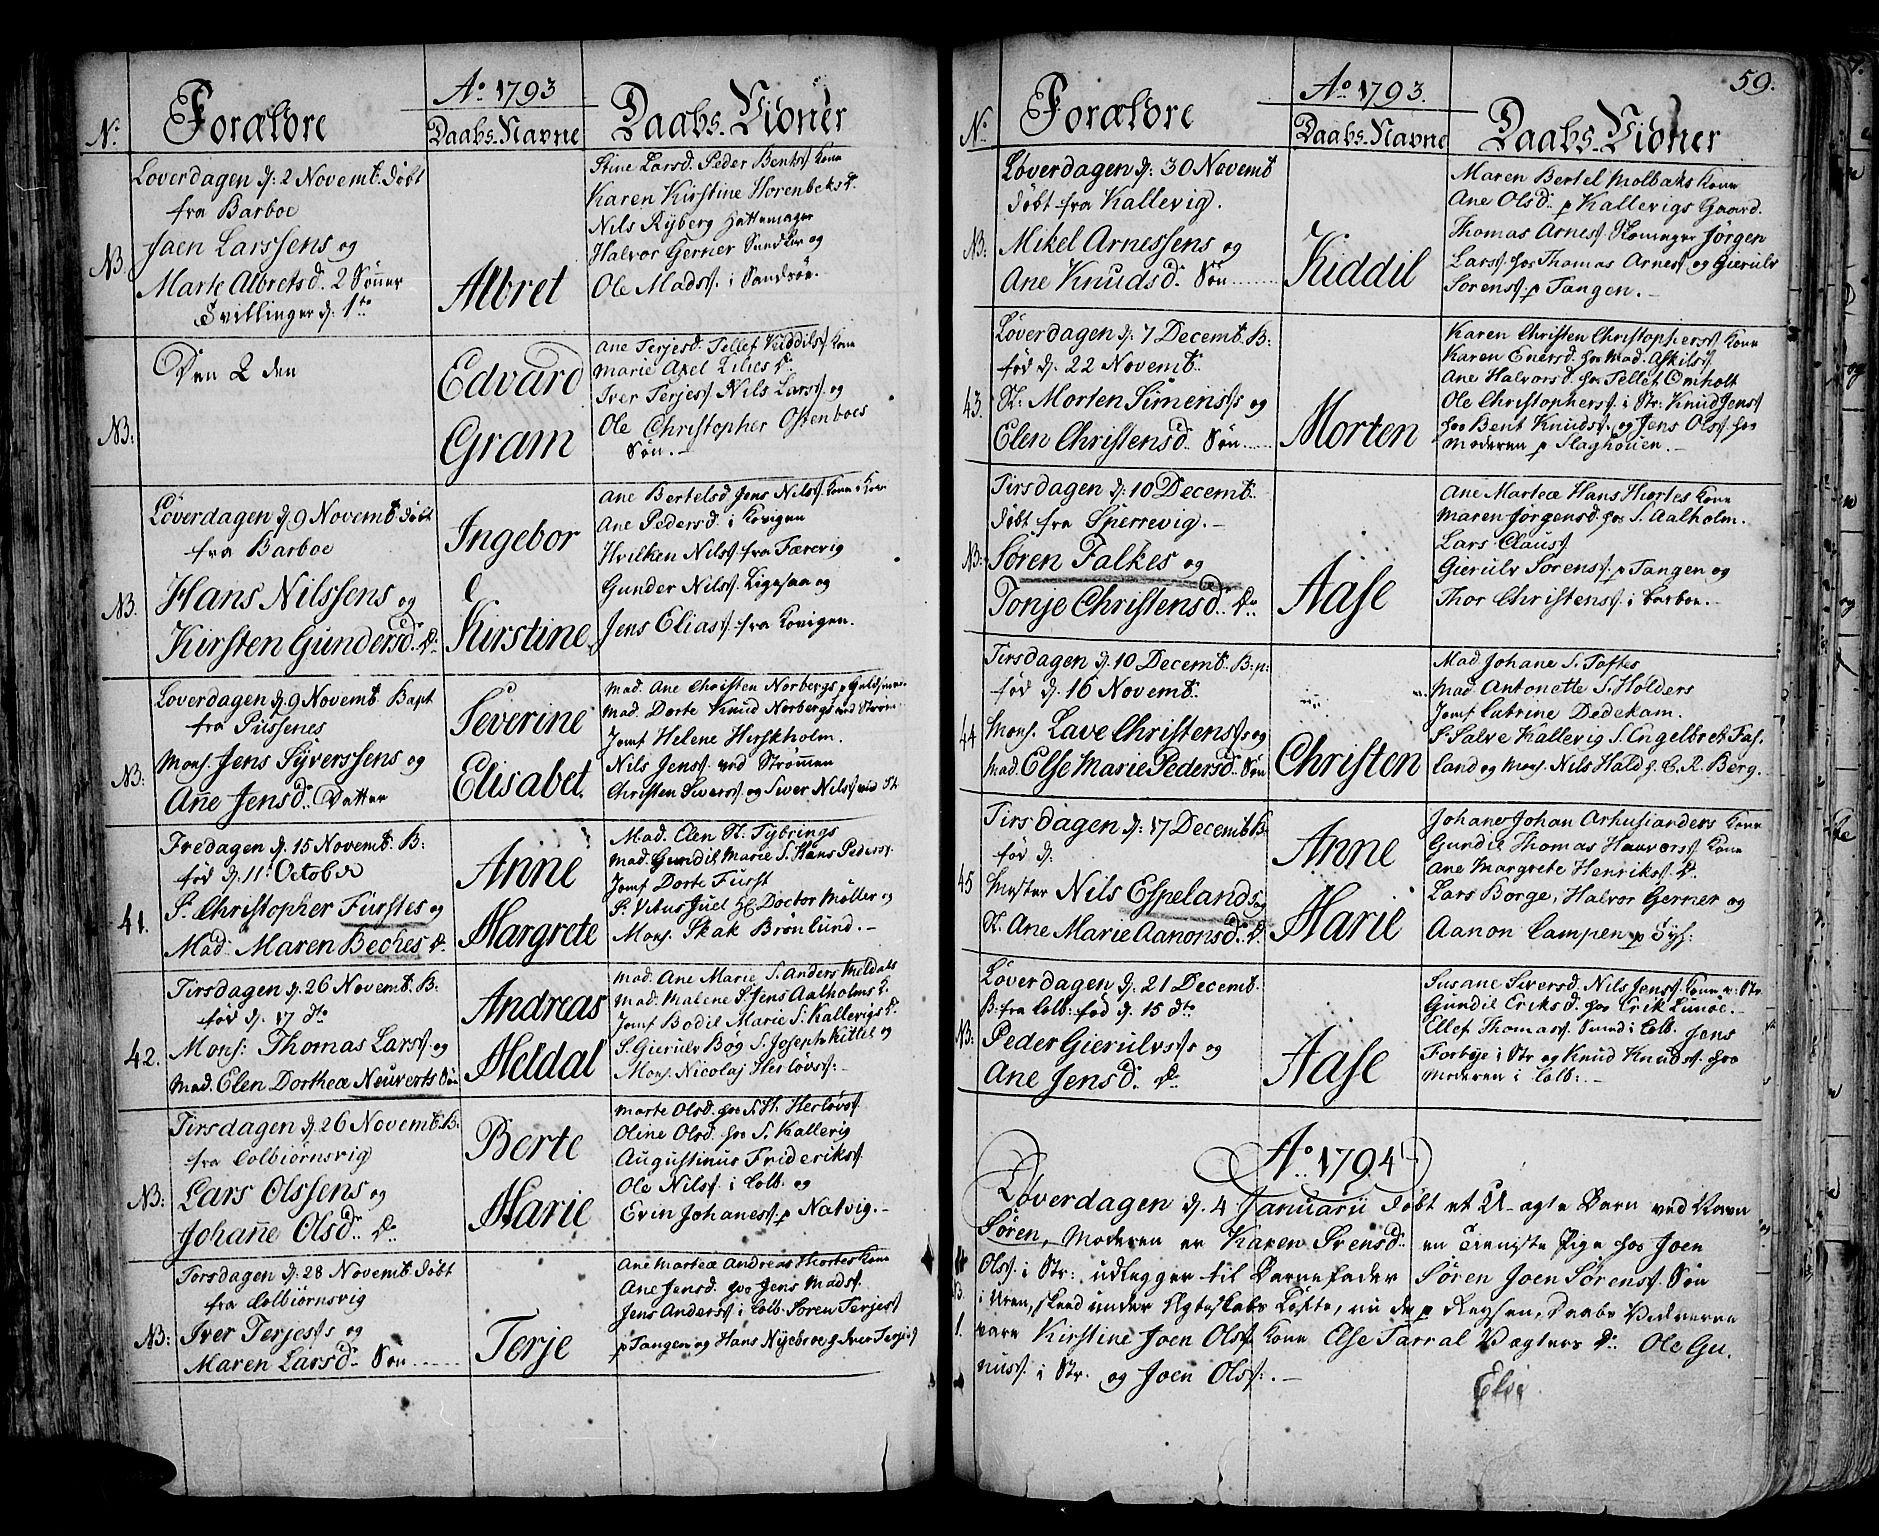 Aº 1793
Nº
Forældre
Daabs-Navne
Daabs-Vidner
Løverdagen d: 2 Novemb. døbt
fra Barboe
NB.
Jaen Larssens og
Marte Albretsd. 2 Sönner
Tvillinger d: 1te
Albret
Stine Larsd. Peder Bents. Kone
Karen Kirstine Horenbeks D.
Nils Ryberg Hattemager
Halvor Gerner og
Ole Mads. i Sandvön.
Den 2 den
NB:
Edvard
Gram
Ane Terjesd. Tellef Kiddils. Kone
Marie Axel Lilies D.
Iver Terjes. Nils Lars. og
Ole Christopher Ostenboes
Søn.
Løverdagen d. 9 Novemb. døbt
fra Barboe
NB.
Hans Nilssens og
Kirsten Gundersd. D.
Ingebor
&
Kirstine
Ane Bertelsd. Jens Nils. Kone i
Ane Pedersd. i Kovigen
Hvilken Nils. fra Færevig
Gunder Nils. Ligesaa og
Jens Elias. fra Kovigen.
Løverdagen d. 9 Novemb. Bapt
fra Pussenes
NB:
Mons. Jens Syverssens og
Ane Jensd. Datter
Severine
Elisabet.
Mad. Ane Christen Norbergs
Mad. Dorte Knud Norbergs ved Ström
Jomf Helene Hirskholm.
Nils Jens. ved Strömmen
Christen Sivers. og Siver Nils. ved St
Fredagen d. 15 Novemb. B:
föd d. 11 October
41.
S. Christopher Fürstes og
Mad. Maren Beches D.
Anne
Margrete
Mad. Elen St. Tybrings
Mad. Gundil Marie S. Hans Peders.
Jomf Dorte Fürst
S. Vitus Juel Hr Doctor Möller og
Mons. Skak Brönlund.
Tirsdagen d. 26 Novemb. B.
föd d. 17 do
42.
Mons: Thomas Lars. og
Mad. Elen Dortheæ Neuverts Sön
Andreas
Meldal
Mad. Ane Marie S. Anders Meldals
Mad. Malene S. Jens Aalholms
Jomf Bodil Marie S. Kallevigs D.
S. Gierulv Bog S. Joseph Kittel og
Mons. Nicolaj Herlövs:
Tirsdagen d. 26 Novemb. B.
fra Colbiörnsvig
NB:
Lars Olssens og
Johane Olsd. D.
Berte
Marie
Marte Olsd. hos S. H. Herlövs.
Oline Olsd. hos S. Kallevig
Augustinus Frideriks.
Ole Nils. i Colb. og
Evin Johanes. p Natvig.
Torsdagen d. 28 Novemb. döbt
fra Colbiörnsvig
NB:
Iver Terjes og
Maren Larsd. Søn
Terje
Ane Marteæ Andreas Hiortes Kone
Ane Jensd. hos Jens Mads.
Jens Anders. i Colb. Sören Terjes.
p Tangen og Hans Nyebroe
59.
Aº 1793.
Nº
Forældre
Daabs-Navne
Daabs-Vidner
Løverdagen d: 30 Novemb
døbt fra Kallevig.
NB:
Mikel Arnessens og
Ane Knudsd. Søn
Kiddil
Maren Bertel Molbæks Kone
Ane Olsd. p Kallevigs Gaard.
Thomas Arnes. Jørgen
Lars. hos Thomas Arnes. og Gierulv
Sorens. p Tangen.
Løverdagen d: 7 Decemb. B:
föd d. 22 Novemb.
43.
St: Morten Simens og
Elen Christensd. Søn
Morten
Karen Christen Christophers. Kone
Karen Enersd. hos Mad. Askils
Ane Halvorsd. hos Tellef Omholt
Ole Christophers. i Str: Knud Jens.
hos Bent Knuds. og Jens Ols. hos
Moderen p Flaghouen.
Tirsdagen d. 10 Decemb.
döbt fra Sperrevig.
NB:
Søren Falkes og
Tonje Christensd. D.
Aase
Ane Marteæ Hans Hiortes Kone
Maren Jörgensd. hos S. Aalholm.
Lars Claus.
Gierulv Sorens. p Tangen og
Thor Christens. i Barboe.
Tirsdagen d. 10 Decemb. B:
föd d. 16 Novemb.
44.
Mons. Lave Christens og
Mad. Else Marie Pedersd. Søn
Christen
Mad. Johane S. Toftes
Mad. Antonette S. Hölders
Jomf Catrine Dedekam.
S. Salve Kallevig S. Engelbret Fas.
land og Mons. Nils Hald g. C. R. Berg.
Tirsdagen d: 17 Decemb B.
föd d:
45
Mester Nils Espelands og
St. Ane Marie Aanonsd. D.
Anne
Marie
Johane Johan Arhusianders Kone
Gundil Thomas Kone
Ane Margrete Henriks. D.
Lars Borge, Halvor Gerner og
Aanon Campen p
Løverdagen d. 21 Decemb.
B. fra Colb: föd d. 15 do
NB:
Peder Gierulvs og
Ane Jensd. D.
Aase
Susane Siversd. Nils Jens. Kone v. Str
Gundil Eriksd. hos Erik Lunöe.
Ellef Thomas. Smed i Colb. Jens
Forbye i Str og Knud Knuds. hos
Moderen i Colb:
Aº 1794
Løverdagen d. 4 Januarii døbt et U-ægte Barn ved Navn
Søren, Moderen er Karen Svensd. en Tieniste Pige hos Joen
Ols. i Str: udlegger til Barnefader Søren Joen Sörens. Søn
i Uren, skeed under Egteskabs Løfte, nu de p Reysen, Daabs Vidnerne
vare Kirstine Joen Ols. Kone Else Tarral Vægters D. Ole Gu.
nus. i Str. og Joen Ols:
1.